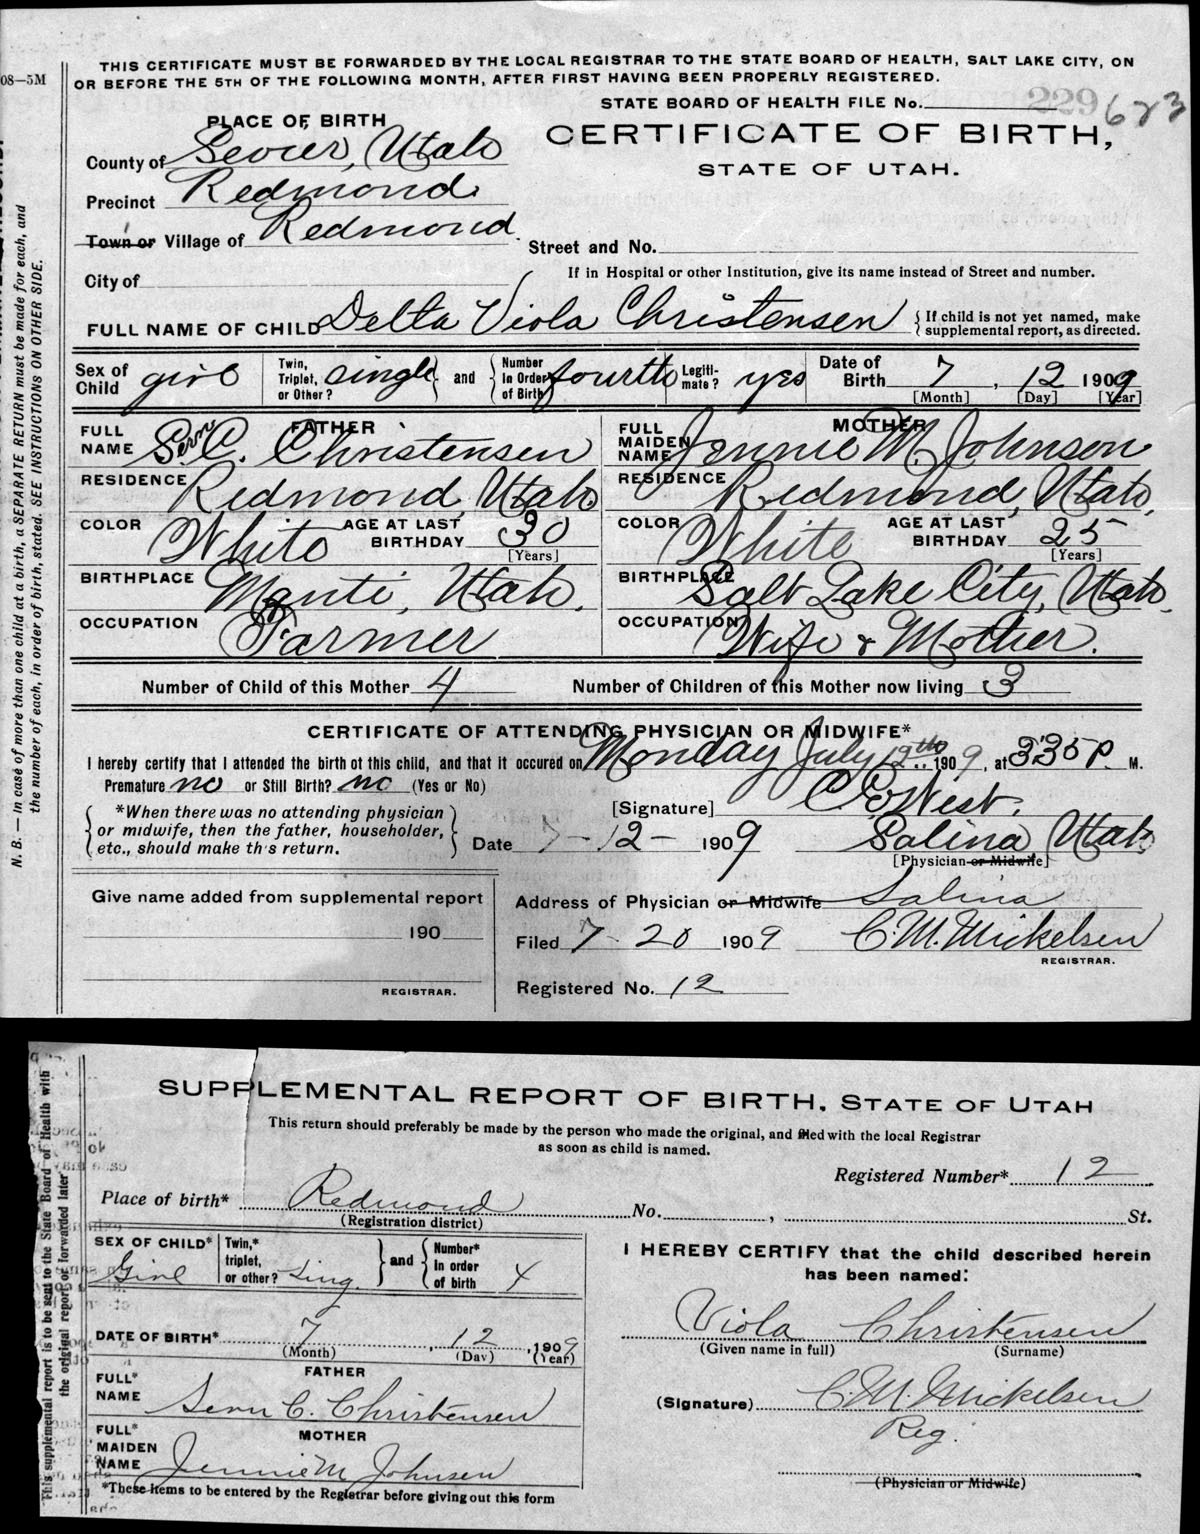 08—5M
THIS CERTIFICATE MUST BE FORWARDED BY THE LOCAL REGISTRAR TO THE STATE BOARD OF HEALTH, SALT LAKE CITY, ON
OR BEFORE THE 5TH OF THE FOLLOWING MONTH, AFTER FIRST HAVING BEEN PROPERLY REGISTERED.
STATE BOARD OF HEALTH FILE No. 229 623
PLACE OF BIRTH
CERTIFICATE OF BIRTH,
STATE OF UTAH.
County of Sevier, Utah
Precinct Redmond.
Town or Village of Redmond.
Street and No.
City of
If in Hospital or other Institution, give its name instead of Street and number.
FULL NAME OF CHILD Delta Viola Christensen { If child is not yet named, make
supplemental report, as directed.
Sex of Child girl Twin, Triplet, or Other? single and Number In Order of Birth fourth Legiti-mate? yes Date of Birth 7, 12 1909
[Month] [Day] [Year]
FATHER
FULL NAME Sern C. Christensen
RESIDENCE Redmond, Utah.
COLOR White AGE AT LAST BIRTHDAY 30
[Years]
BIRTHPLACE Manti, Utah.
OCCUPATION Farmer
MOTHER
FULL MAIDEN NAME Jennie M. Johnson
RESIDENCE Redmond, Utah,
COLOR White AGE AT LAST BIRTHDAY 25
[Years]
BIRTHPLACE Salt Lake City, Utah.
OCCUPATION Wife & Mother.
Number of Child of this Mother 4 Number of Children of this Mother now living 3
CERTIFICATE OF ATTENDING PHYSICIAN OR MIDWIFE*
I hereby certify that I attended the birth of this child, and that it occured on Monday July 12th 1909, at 3:35 P. M.
Premature no or Still Birth? no (Yes or No)
*When there was no attending physician
or midwife, then the father, householder,
etc., should make this return.
[Signature] C E West.
Date 7-12- 1909 Salina Utah
[Physician or Midwife]
Give name added from supplemental report
190
REGISTRAR.
Address of Physician or Midwife Salina
Filed 7-20 1909 C. M. Mickelsen
REGISTRAR.
Registered No. 12
N. B. — In case of more than one child at a birth, a SEPARATE RETURN must be made for each, and
the number of each, in order of birth, stated. SEE INSTRUCTIONS ON OTHER SIDE.
SUPPLEMENTAL REPORT OF BIRTH, STATE OF UTAH
This return should preferably be made by the person who made the original, and filed with the local Registrar
as soon as child is named.
Registered Number* 12
Place of birth* Redmond No. , St.
(Registration district)
SEX OF CHILD* Girl Twin,* triplet, or other? Sing. and Number* in order of birth 4
DATE OF BIRTH* 7, 12, 1909
(Month) (Day) (Year)
FATHER
FULL* NAME Sern C. Christensen
MOTHER
FULL* MAIDEN NAME Jennie M Johnsen
*These items to be entered by the Registrar before giving out this form
I HEREBY CERTIFY that the child described herein
has been named:
Viola Christensen
(Given name in full) (Surname)
(Signature) C. M. Mickelsen
Reg.
(Physician or Midwife)
This supplemental report is to be sent to the State Board of Health with
the original report or forwarded later